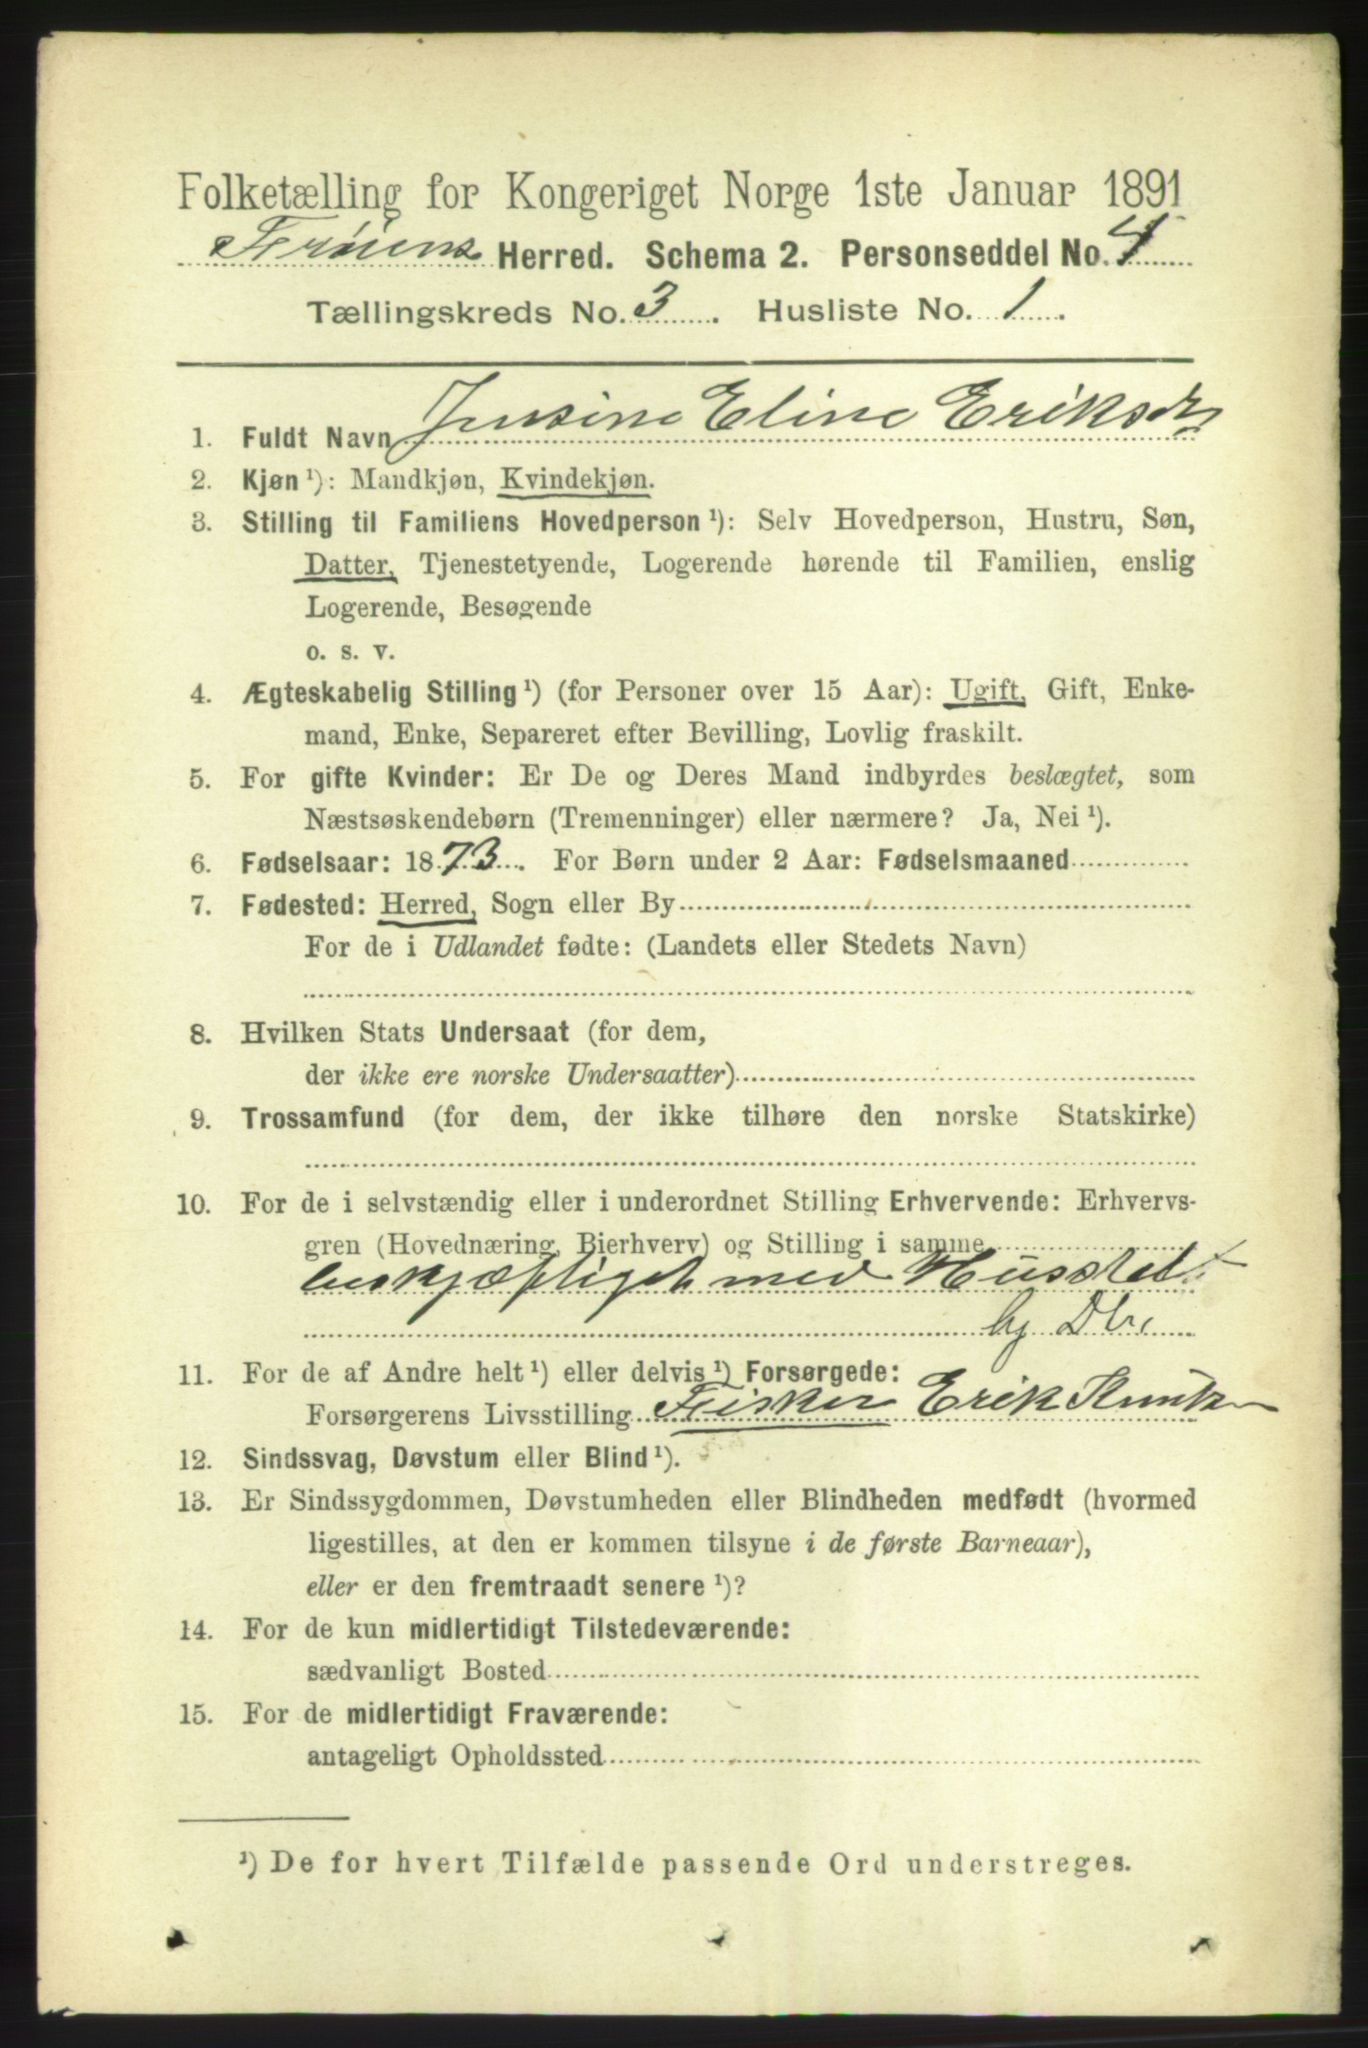 Folketælling for Kongeriget Norge 1ste Januar 1891
Frøiens Herred. Schema 2. Personseddel No. 4
Tællingskreds No. 3. Husliste No. 1.
1. Fuldt Navn Jensine Eline Eriksdr
2. Kjøn ¹): Mandkjøn, Kvindekjøn.
3. Stilling til Familiens Hovedperson ¹): Selv Hovedperson, Hustru, Søn,
Datter, Tjenestetyende, Logerende hørende til Familien, enslig
Logerende, Besøgende
o. s. v.
4. Ægteskabelig Stilling ¹) (for Personer over 15 Aar): Ugift, Gift, Enke-
mand, Enke, Separeret efter Bevilling, Lovlig fraskilt.
5. For gifte Kvinder: Er De og Deres Mand indbyrdes beslægtet, som
Næstsøskendebørn (Tremenninger) eller nærmere? Ja, Nei ¹).
6. Fødselsaar: 1873. For Børn under 2 Aar: Fødselsmaaned
7. Fødested: Herred, Sogn eller By
For de i Udlandet fødte: (Landets eller Stedets Navn)
8. Hvilken Stats Undersaat (for dem,
der ikke ere norske Undersaatter)
9. Trossamfund (for dem, der ikke tilhøre den norske Statskirke)
10. For de i selvstændig eller i underordnet Stilling Erhvervende: Erhvervs-
gren (Hovednæring, Bierhverv) og Stilling i samme
beskjæftiget med Husstel
11. For de af Andre helt ¹) eller delvis ¹) Forsørgede:
Forsørgerens Livsstilling Fisker Erik Knuts
12. Sindssvag, Døvstum eller Blind ¹).
13. Er Sindssygdommen, Døvstumheden eller Blindheden medfødt (hvormed
ligestilles, at den er kommen tilsyne i de første Barneaar),
eller er den fremtraadt senere ¹)?
14. For de kun midlertidigt Tilstedeværende:
sædvanligt Bosted
15. For de midlertidigt Fraværende:
antageligt Opholdssted
¹) De for hvert Tilfælde passende Ord understreges.